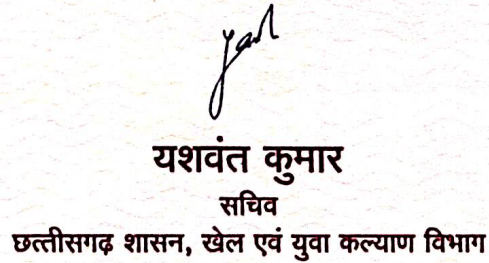 यशवंत कुमार
सचिव
छत्तीसगढ़ शासन, खेल एवं युवा कल्याण विभाग